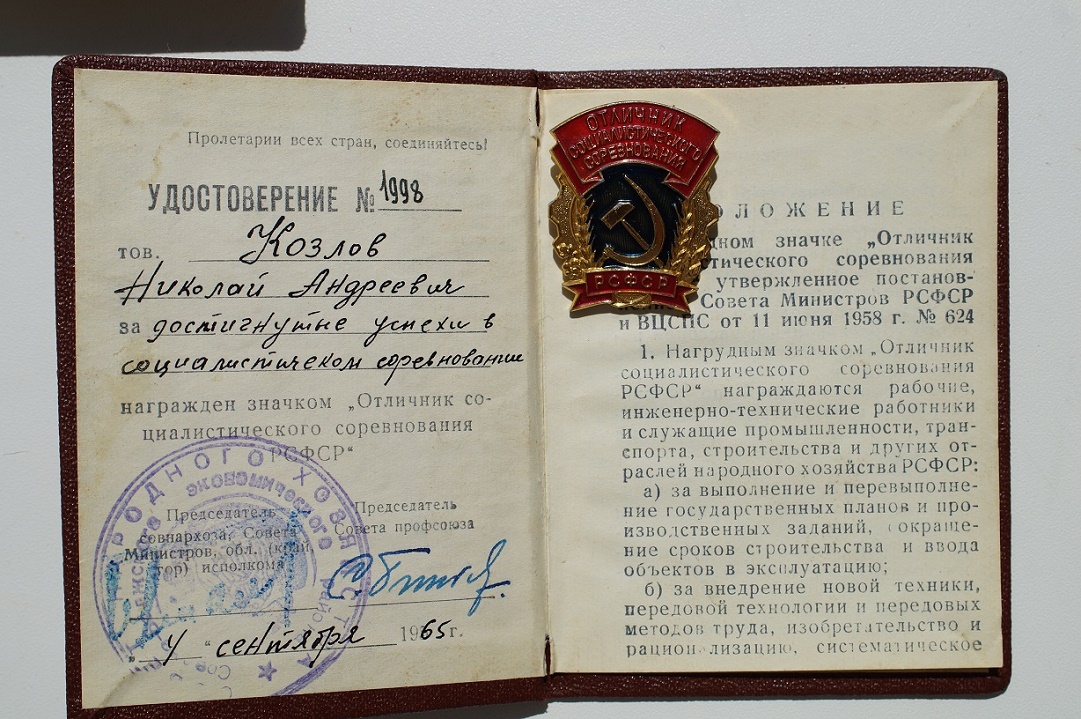 Пролетарии всех стран, соединяйтесь!
УДОСТОВЕРЕНИЕ № 1998
тов. Козлов
Николай Андреевич
за достигнутые успехи в
социалистическом соревновании
награжден значком „Отличник со-
циалистического соревнования
РСФСР“
Председатель
совнархоза, Совета
Министров, обл. (край,
гор) исполкома
Председатель
Совета профсоюза
„ 4 “ сентября 1965 г.
РОДНОГО ХОЗЯ
экономического
района
ОТЛИЧНИК
СОЦИАЛИСТИЧЕСКОГО
СОРЕВНОВАНИЯ
РСФСР
ОЛОЖЕНИЕ
дном значке „Отличник
тического соревнования
утвержденное постанов-
Совета Министров РСФСР
и ВЦСПС от 11 июня 1958 г. № 624
1. Нагрудным значком „Отличник
социалистического соревнования
РСФСР“ награждаются рабочие,
инженерно-технические работники
и служащие промышленности, тран-
спорта, строительства и других от-
раслей народного хозяйства РСФСР:
а) за выполнение и перевыполне-
ние государственных планов и про-
изводственных заданий, сокраще-
ние сроков строительства и ввода
объектов в эксплуатацию;
б) за внедрение новой техники,
передовой технологии и передовых
методов труда, изобретательство и
рационализацию, систематическое